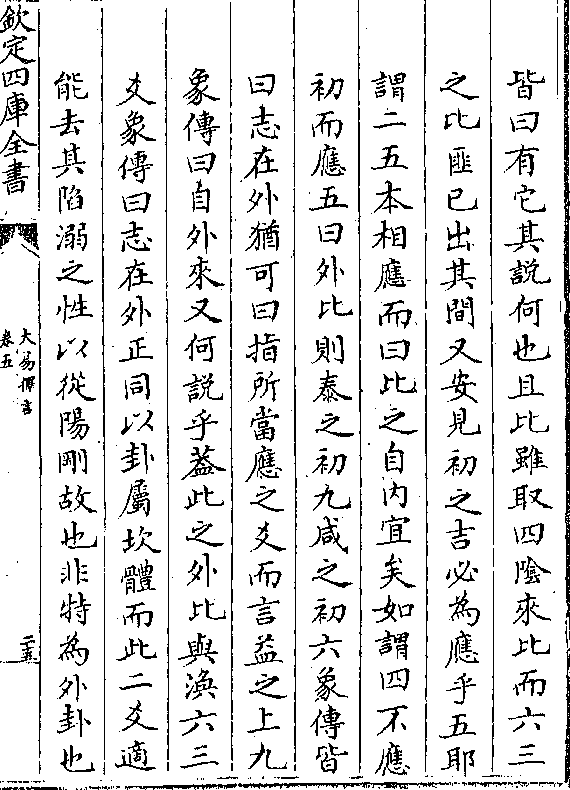 皆曰有它其説何也且比雖取四陰來比而六三
之比匪已出其間又安見初之吉必為應乎五耶
謂二五本相應而曰比之自内宜矣如謂四不應
初而應五曰外比則泰之初九咸之初六象傳皆
曰志在外猶可曰指所當應之爻而言益之上九
象傳曰自外來又何説乎葢此之外比與渙六三
爻象傳曰志在外正同以卦屬坎體而此二爻適
能去其陷溺之性以從陽剛故也非特為外卦也
欽定四庫全書
大易擇言
卷五
二五